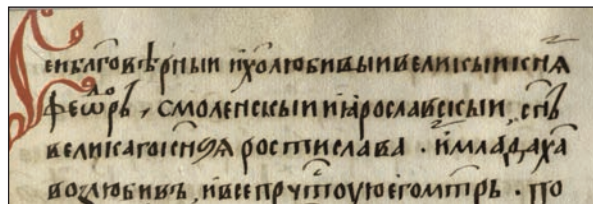 Сеи благовѣрныи и х҃олюбивыи великыи кн҃ѧ
феѡⷣрь, смоленскыи и ꙗрославскыи, сн҃ъ
великаго кн҃ѧ ростислава · и млада х҃а
возлюбивъ, и все пр҃чтоую его мт҃рь · по